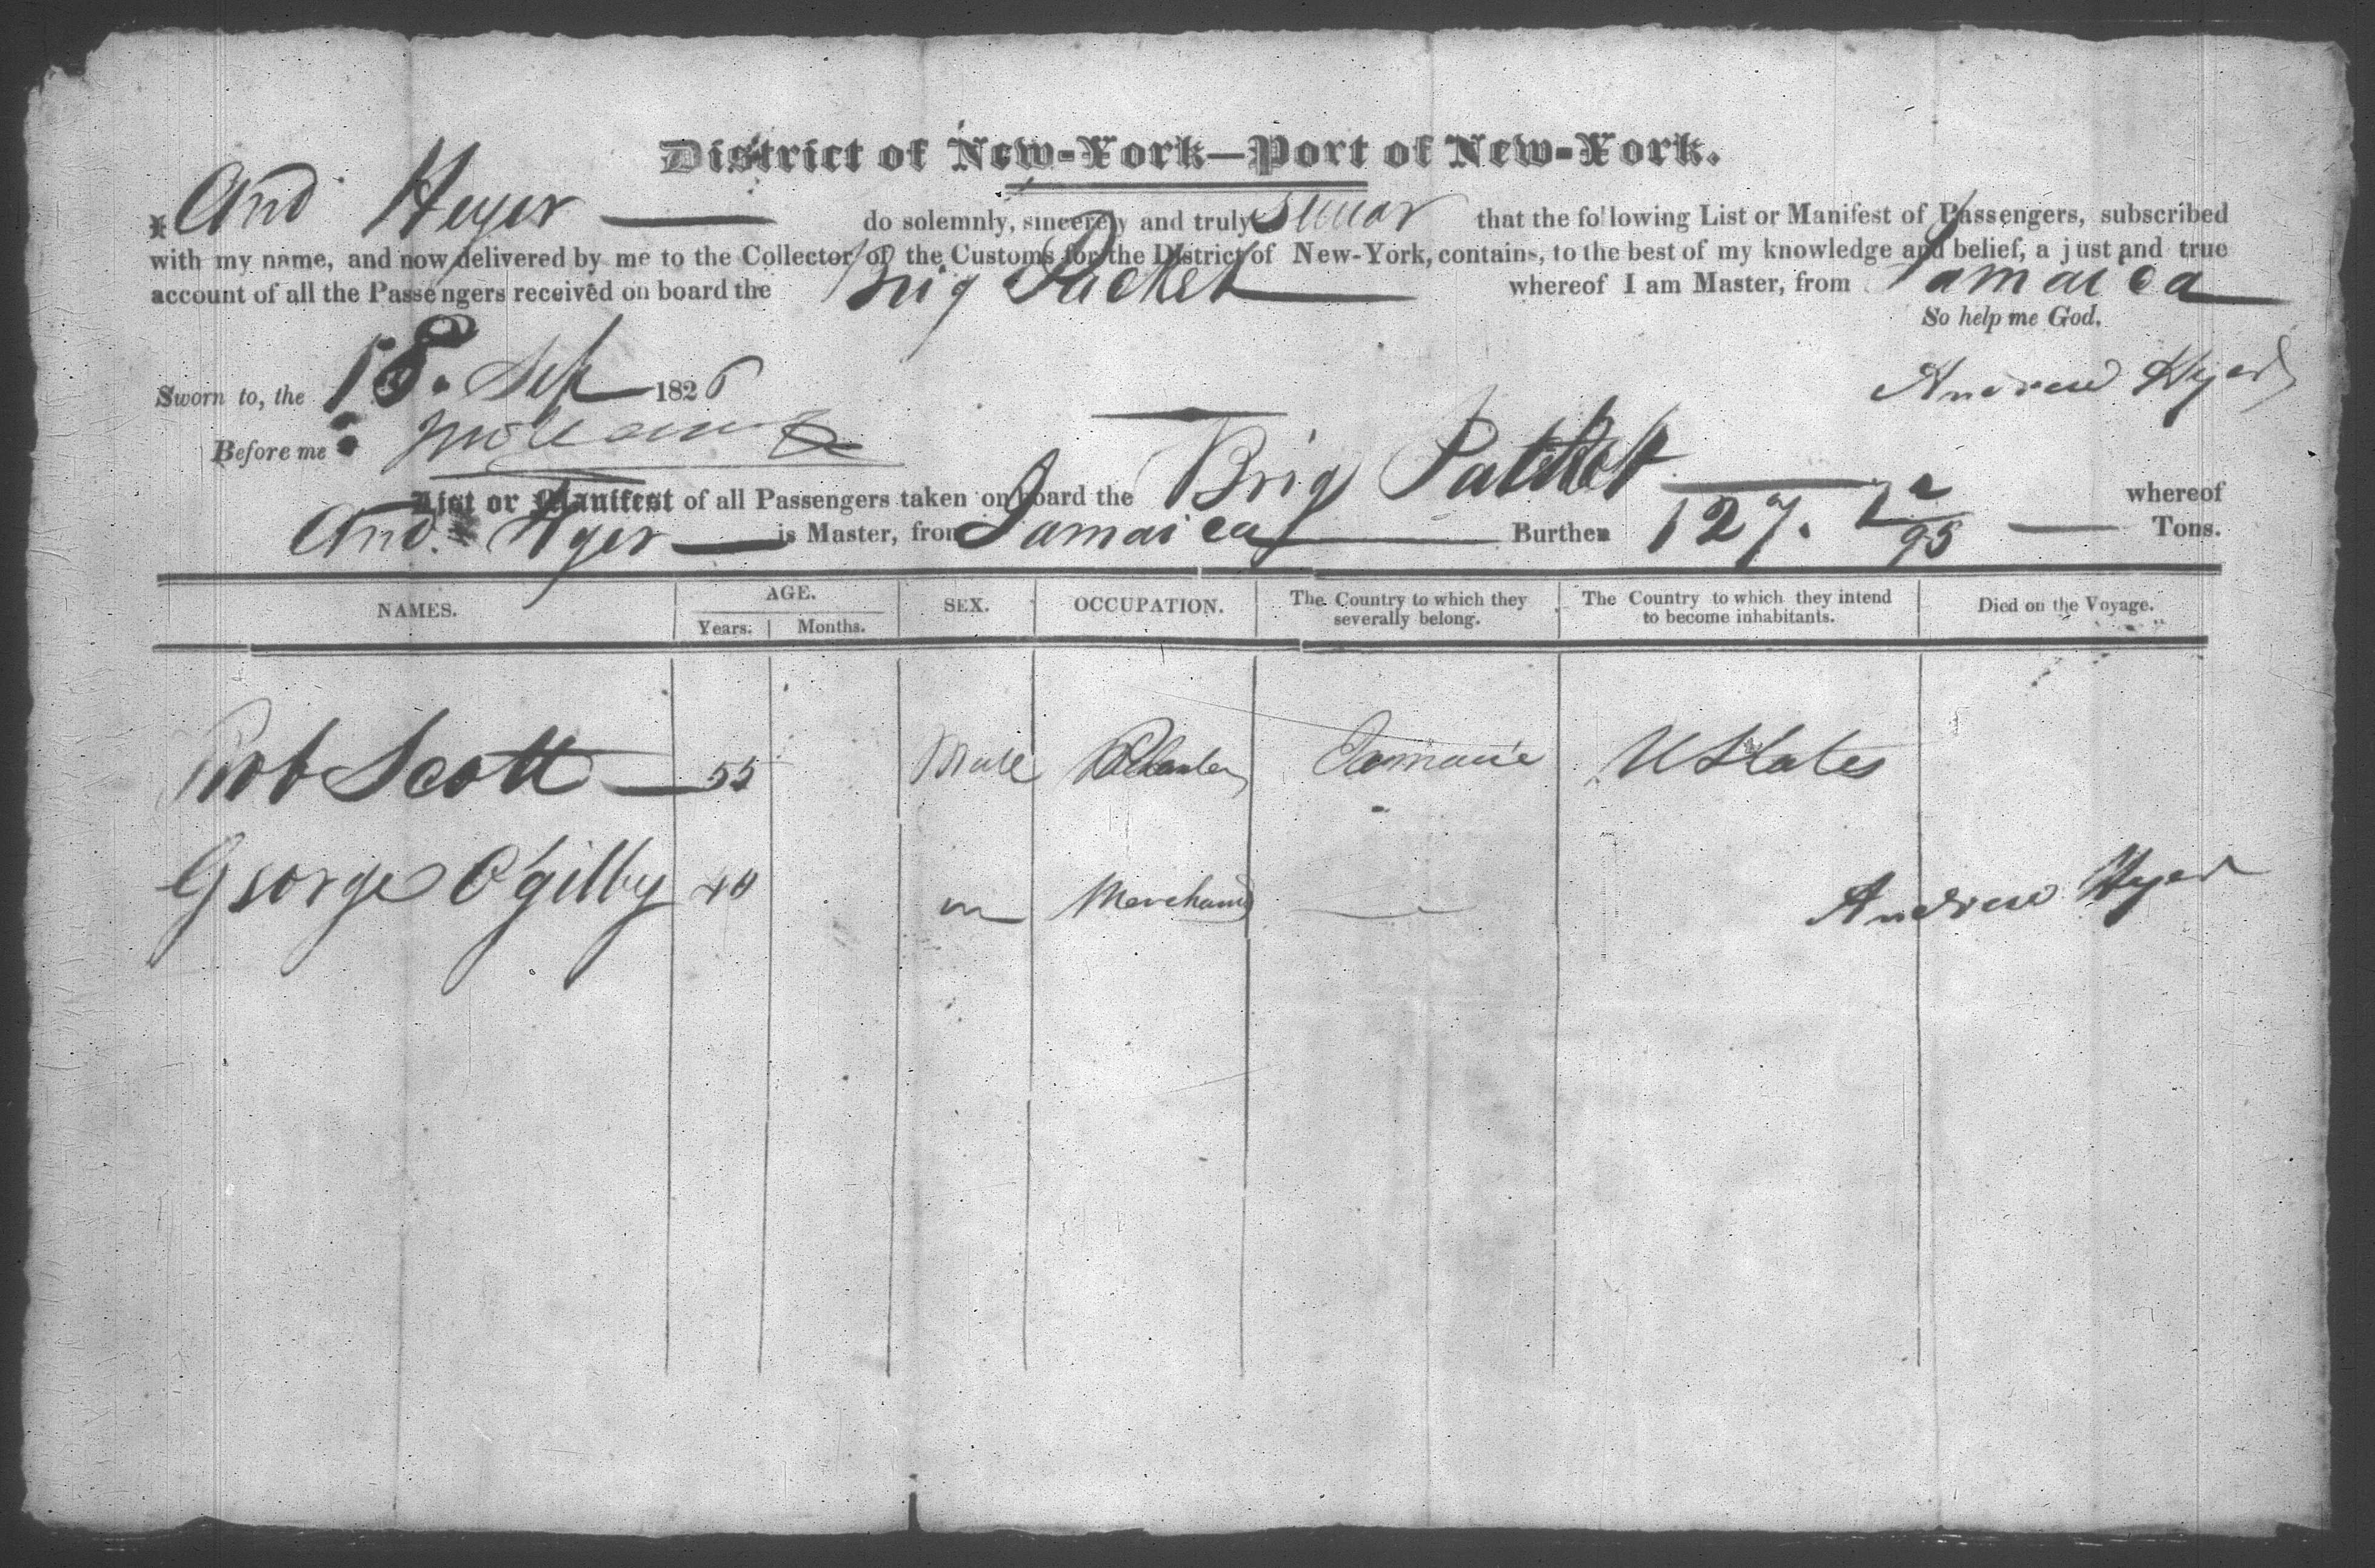 District of New-York—Port of New-York.
I And Heyer do solemnly, sincerely and truly Swear that the following List or Manifest of Passengers, subscribed
with my name, and now delivered by me to the Collector of the Customs for the District of New-York, contains, to the best of my knowledge and belief, a just and true
account of all the Passengers received on board the Brig Packet whereof I am Master, from Jamaica
So help me God.
Sworn to, the 18. Sep 1826
Andrew Hyer
Before me
List or Manifest of all Passengers taken on board the Brig Packet whereof
And. Hyer is Master, from Jamaica Burthen 127. 72/95 Tons.
NAMES. AGE. SEX. OCCUPATION. The Country to which they severally belong. The Country to which they intend to become inhabitants. Died on the Voyage.
Years. Months.
Rob Scott 55 Male Planter Jamaica U States
George O'gilby 40 m Merchant
Andrew Hyer